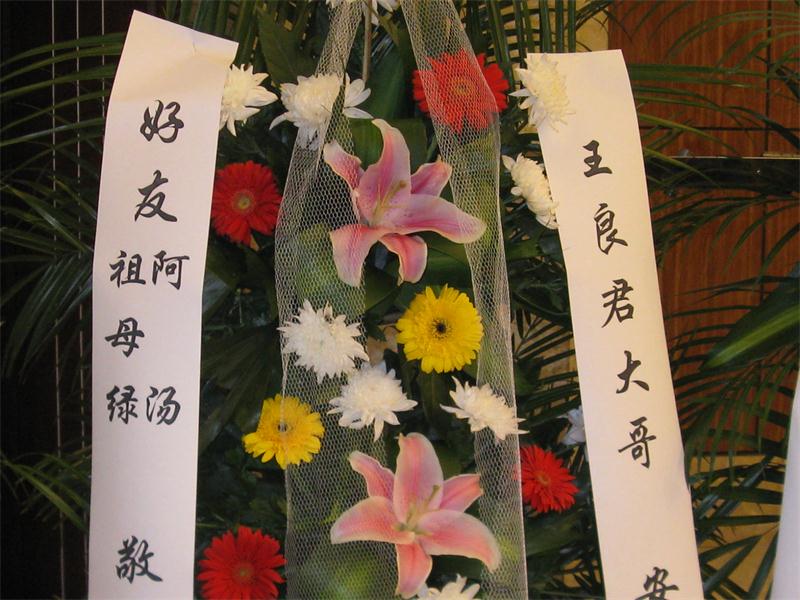 王良君大哥 安
好友 祖母绿 阿汤 敬